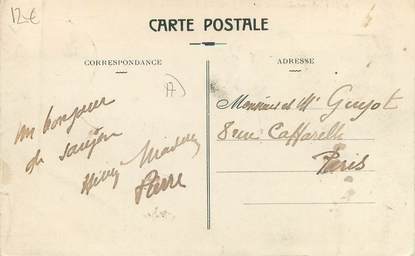 12€
CARTE POSTALE
CORRESPONDANCE
ADRESSE
A
un bonjour
de Saujon
Pierre
Monsieur et Mme Guyot
8 rue Caffarelli
Paris